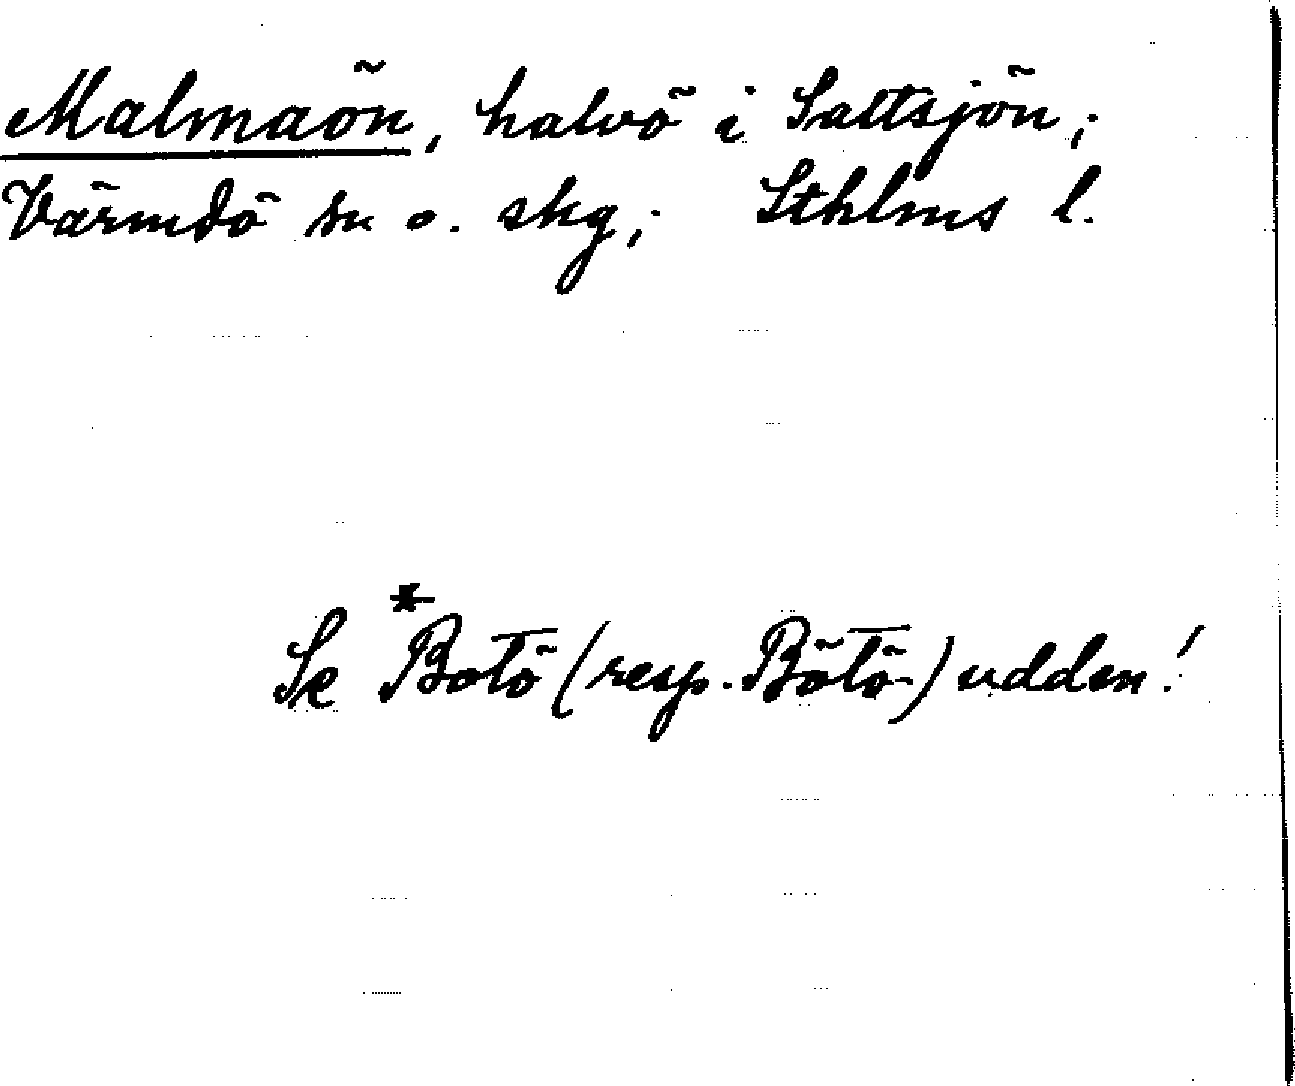 Malmaön, halvö i Saltsjön;
Värmdö sn o. skg; Sthlms l.
Se *Botö (resp. Bötö-) udden!